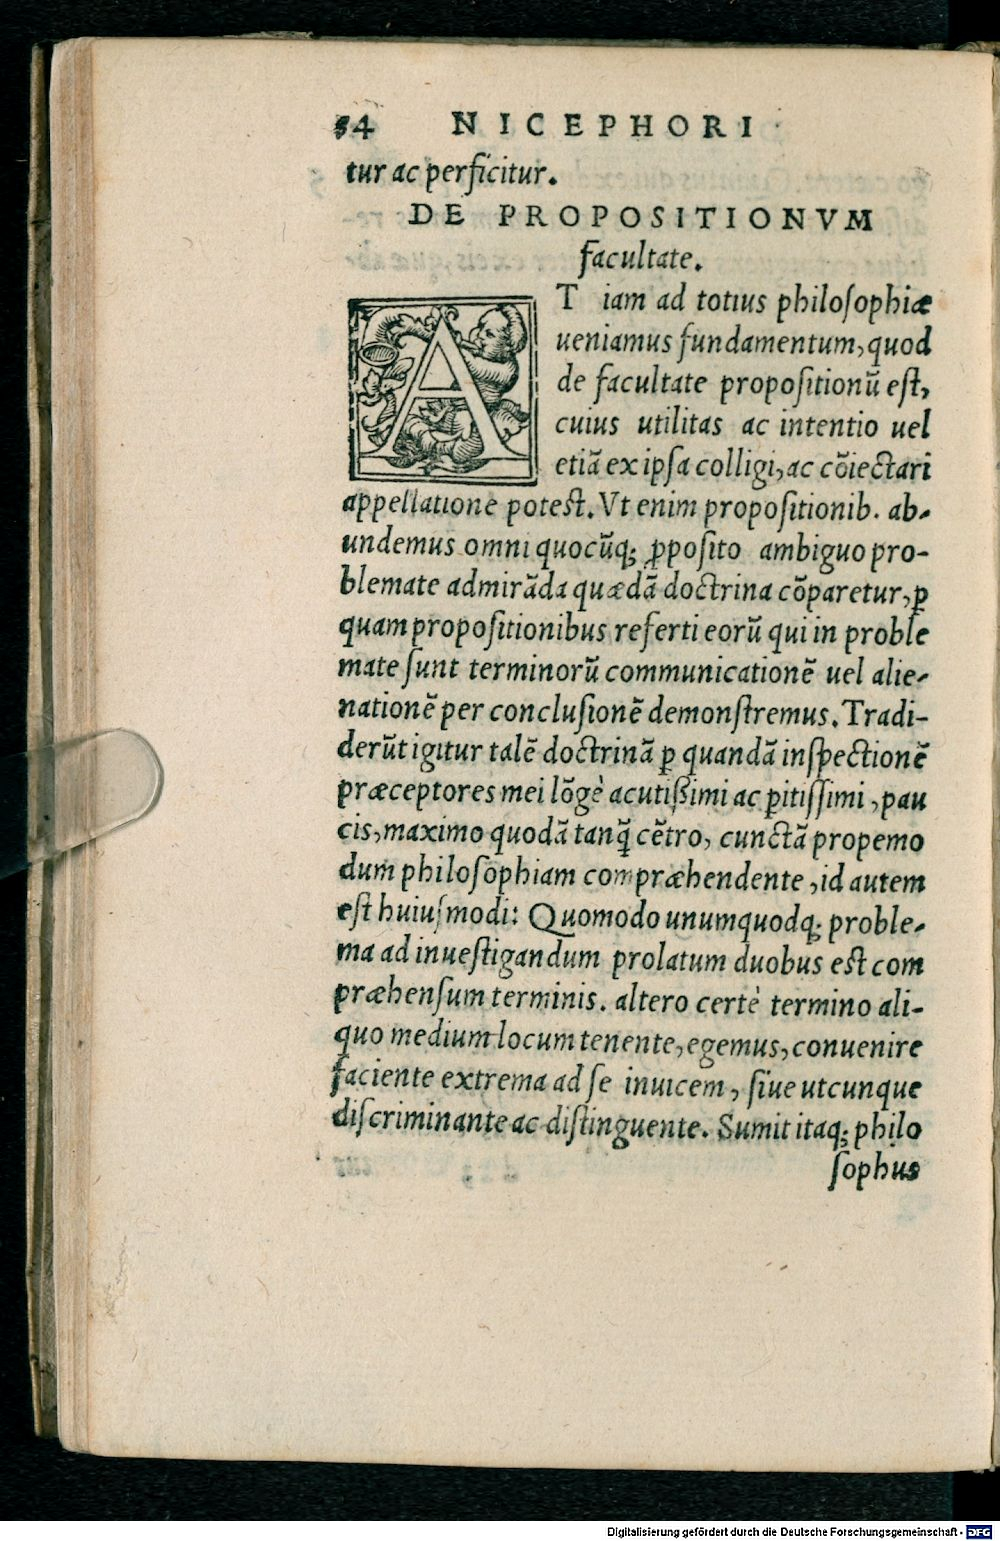 54 NICEPHORI
tur ac perficitur.
DE PROPOSITIONVM
facultate.
AT iam ad totius philoſophiæ
ueniamus fundamentum, quod
de facultate propoſitionũ eſt,
cuius utilitas ac intentio uel
etiã ex ipſa colligi, ac cõiectari
appellatione poteſt. Vt enim propoſitionib. ab-
undemus omni quocũq; ꝓpoſito ambiguo pro-
blemate admirãda quædã doctrina cõparetur, ꝑ
quam propoſitionibus referti eorũ qui in proble
mate ſunt terminorũ communicationẽ uel alie-
nationẽ per concluſionẽ demonſtremus. Tradi-
derũt igitur talẽ doctrinã ꝑ quandã inſpectionẽ
præceptores mei lõgè acutißimi ac ꝑitiſſimi, pau
cis, maximo quodã tanq̃ cẽtro, cunctã propemo
dum philoſophiam compræhendente, id autem
eſt huiuſmodi: Quomodo unumquodq; proble-
ma ad inueſtigandum prolatum duobus eſt com
præhenſum terminis. altero certè termino ali-
quo medium locum tenente, egemus, conuenire
faciente extrema ad ſe inuicem, ſiue utcunque
diſcriminante ac diſtinguente. Sumit itaq; philo
ſophus
Digitalisierung gefördert durch die Deutsche Forschungsgemeinschaft - DFG